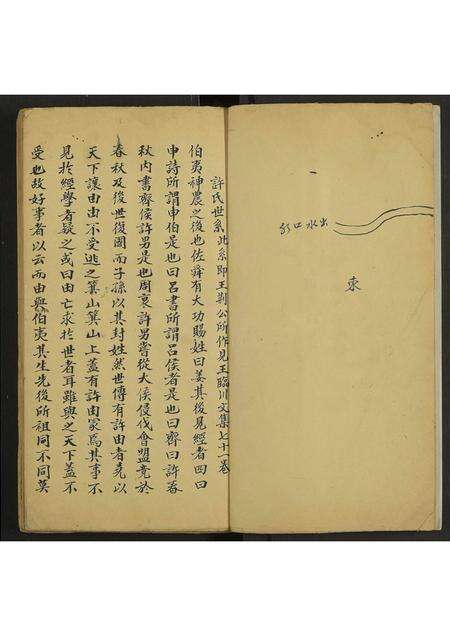 出水口
東
許氏世系此系即王荊公所作見王臨川文集七十一卷
伯夷神農之後也佐舜有大功賜姓曰姜其後見經者四曰
申詩所謂申伯是也曰呂書所謂呂侯者是也曰齊曰許春
秋內書齊侯許男是也周衰許男嘗從大侯侵伐會盟竟於
春秋及後世復國而子孫以其封姓然世傳有許由者堯以
天下讓由由不受逃之箕山箕山上蓋有許由冢焉其事不
見於經學者疑之或曰由亡求於世者耳雖與之天下蓋不
受也故好事者以云而由與伯夷其生先後所祖同不同莫